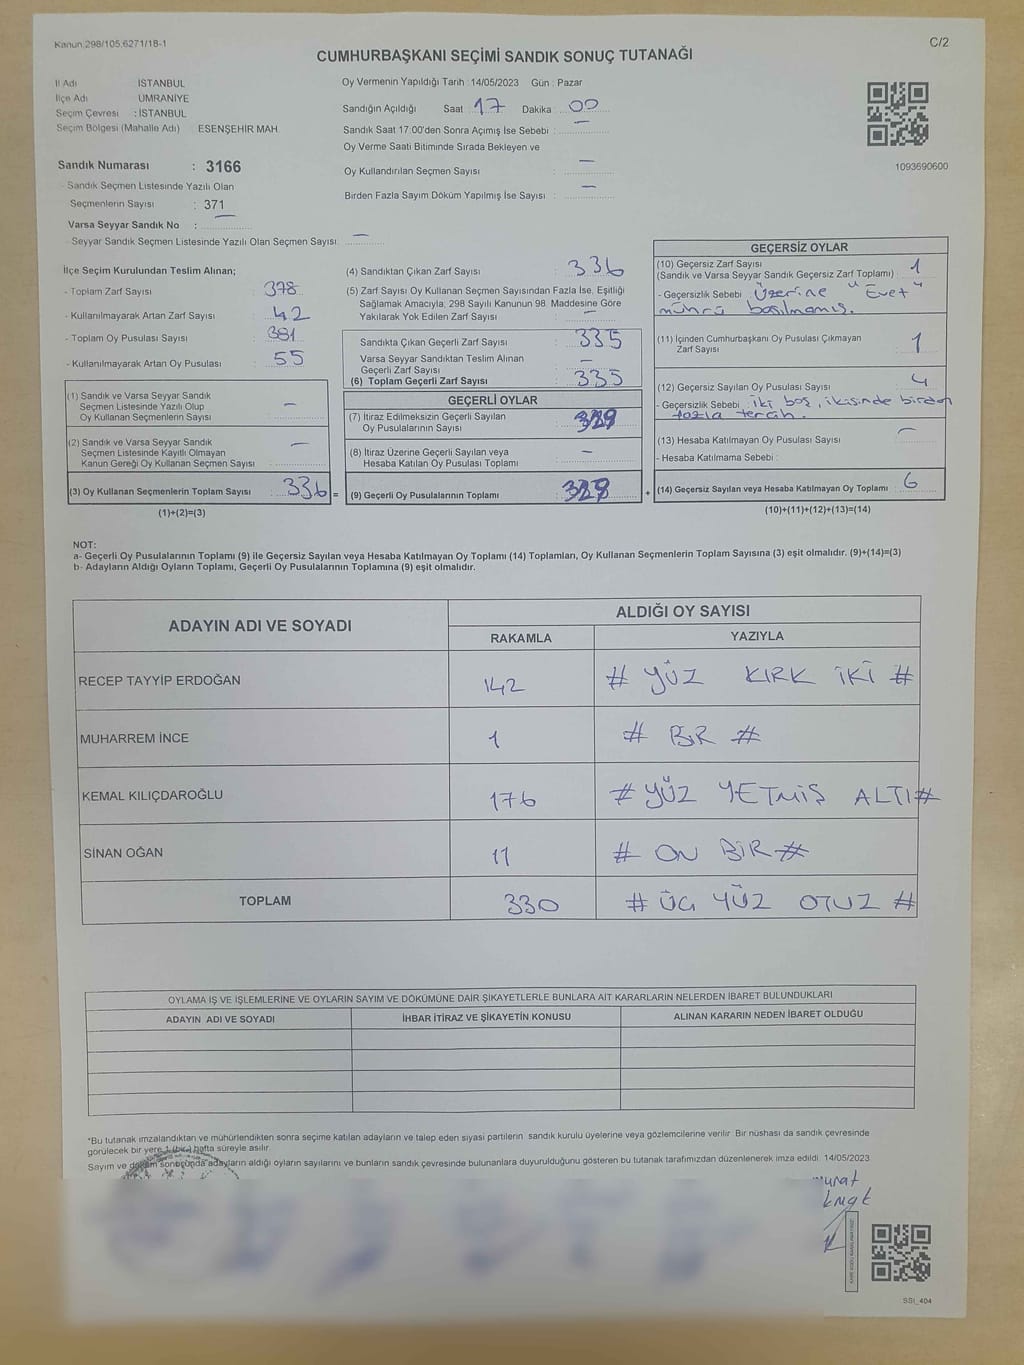 Kanun:298/105,6271/18-1
C/2
CUMHURBAŞKANI SEÇİMİ SANDIK SONUÇ TUTANAĞI
İl Adı İSTANBUL
İlçe Adı ÜMRANİYE
Seçim Çevresi : İSTANBUL
Seçim Bölgesi (Mahalle Adı) ESENŞEHİR MAH.
Oy Vermenin Yapıldığı Tarih : 14/05/2023 Gün : Pazar
Sandığın Açıldığı Saat 17 Dakika 00
Sandık Saat 17:00'den Sonra Açımış İse Sebebi : —
Oy Verme Saati Bitiminde Sırada Bekleyen ve
Oy Kullandırılan Seçmen Sayısı : —
Birden Fazla Sayım Döküm Yapılmış İse Sayısı : —
1093690600
Sandık Numarası : 3166
- Sandık Seçmen Listesinde Yazılı Olan
Seçmenlerin Sayısı : 371
Varsa Seyyar Sandık No : —
- Seyyar Sandık Seçmen Listesinde Yazılı Olan Seçmen Sayısı: —
İlçe Seçim Kurulundan Teslim Alınan;
- Toplam Zarf Sayısı : 378
- Kullanılmayarak Artan Zarf Sayısı : 42
- Toplam Oy Pusulası Sayısı : 381
- Kullanılmayarak Artan Oy Pusulası : 55
(1) Sandık ve Varsa Seyyar Sandık
Seçmen Listesinde Yazılı Olup
Oy Kullanan Seçmenlerin Sayısı : —
(2) Sandık ve Varsa Seyyar Sandık
Seçmen Listesinde Kayıtlı Olmayan
Kanun Gereği Oy Kullanan Seçmen Sayısı : —
(3) Oy Kullanan Seçmenlerin Toplam Sayısı : 336 =
(1)+(2)=(3)
(4) Sandıktan Çıkan Zarf Sayısı : 336
(5) Zarf Sayısı Oy Kullanan Seçmen Sayısından Fazla İse, Eşitliği
Sağlamak Amacıyla; 298 Sayılı Kanunun 98. Maddesine Göre
Yakılarak Yok Edilen Zarf Sayısı : —
Sandıkta Çıkan Geçerli Zarf Sayısı : 335
Varsa Seyyar Sandıktan Teslim Alınan
Geçerli Zarf Sayısı : —
(6) Toplam Geçerli Zarf Sayısı : 335
GEÇERLİ OYLAR
(7) İtiraz Edilmeksizin Geçerli Sayılan
Oy Pusulalarının Sayısı :
(8) İtiraz Üzerine Geçerli Sayılan veya
Hesaba Katılan Oy Pusulası Toplamı : —
(9) Geçerli Oy Pusulalarının Toplamı : +
GEÇERSİZ OYLAR
(10) Geçersiz Zarf Sayısı : 1
(Sandık ve Varsa Seyyar Sandık Geçersiz Zarf Toplamı)
- Geçersizlik Sebebi : Üzerine "Evet"
mührü basılmamış.
(11) İçinden Cumhurbaşkanı Oy Pusulası Çıkmayan
Zarf Sayısı 1
(12) Geçersiz Sayılan Oy Pusulası Sayısı 4
- Geçersizlik Sebebi : iki boş, ikisinde birden
fazla tercih.
(13) Hesaba Katılmayan Oy Pusulası Sayısı : —
- Hesaba Katılmama Sebebi :
(14) Geçersiz Sayılan veya Hesaba Katılmayan Oy Toplamı : 6
(10)+(11)+(12)+(13)=(14)
NOT:
a- Geçerli Oy Pusulalarının Toplamı (9) ile Geçersiz Sayılan veya Hesaba Katılmayan Oy Toplamı (14) Toplamları, Oy Kullanan Seçmenlerin Toplam Sayısına (3) eşit olmalıdır. (9)+(14)=(3)
b- Adayların Aldığı Oyların Toplamı, Geçerli Oy Pusulalarının Toplamına (9) eşit olmalıdır.
ADAYIN ADI VE SOYADI ALDIĞI OY SAYISI
RAKAMLA YAZIYLA
RECEP TAYYİP ERDOĞAN 142 # YÜZ KIRK İKİ #
MUHARREM İNCE 1 # BİR #
KEMAL KILIÇDAROĞLU 176 # YÜZ YETMİŞ ALTI #
SİNAN OĞAN 11 # ON BİR #
TOPLAM 330 # ÜÇ YÜZ OTUZ #
OYLAMA İŞ VE İŞLEMLERİNE VE OYLARIN SAYIM VE DÖKÜMÜNE DAİR ŞİKAYETLERLE BUNLARA AİT KARARLARIN NELERDEN İBARET BULUNDUKLARI
ADAYIN ADI VE SOYADI İHBAR İTİRAZ VE ŞİKAYETİN KONUSU ALINAN KARARIN NEDEN İBARET OLDUĞU
*Bu tutanak imzalandıktan ve mühürlendikten sonra seçime katılan adayların ve talep eden siyasi partilerin sandık kurulu üyelerine veya gözlemcilerine verilir. Bir nüshası da sandık çevresinde
görülecek bir yere 1 (bir) hafta süreyle asılır.
Sayım ve döküm sonucunda adayların aldığı oyların sayılarını ve bunların sandık çevresinde bulunanlara duyurulduğunu gösteren bu tutanak tarafımızdan düzenlenerek imza edildi. 14/05/2023
murat
SSI_404